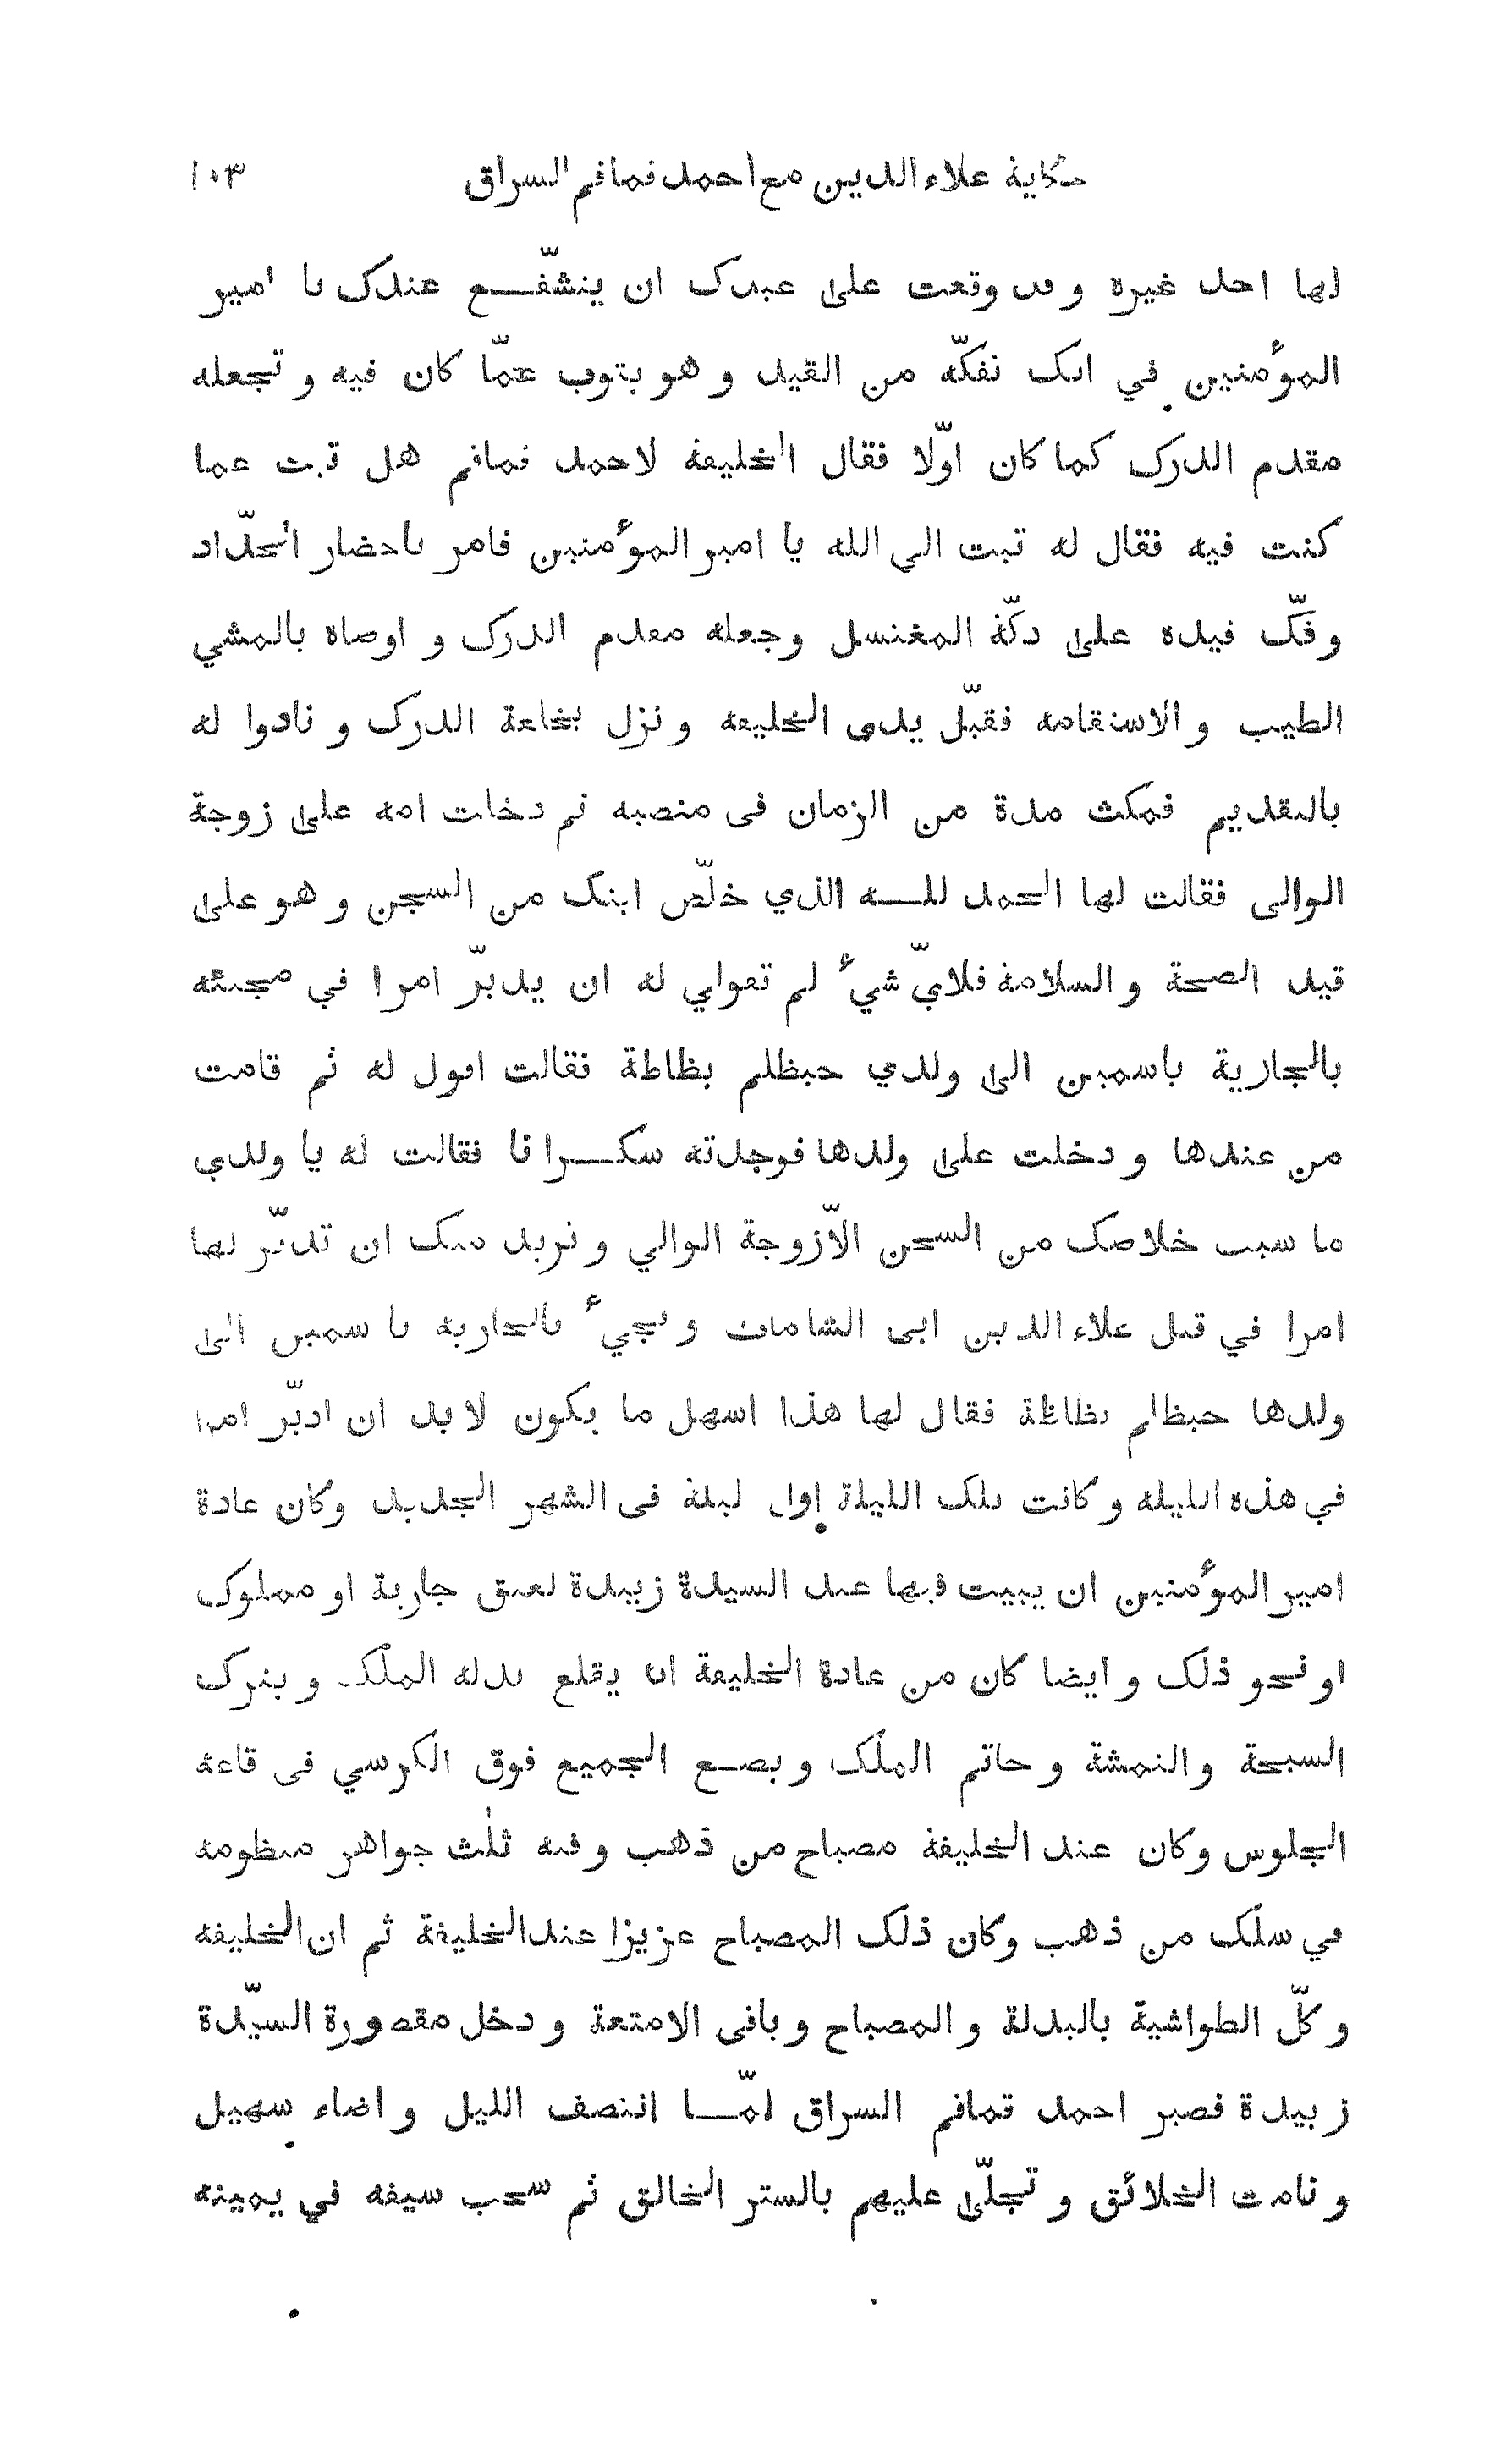 حكاية علاء الدين مع احمد قماقم السراق ١٠٣
لها احد غيره و قد وقعت على عبدك ان يتشفّع عندك يا امير
المؤمنين في انك تفكّه من القيد و هو يتوب عمّا كان فيه و تجعله
مقدم الدرك كما كان اوّلا فقال الخليفة لاحمد قماقم هل تبت عما
كنت فيه فقال له تبت الى الله يا امير المؤمنين فامر باحضار الحدّاد
و فكّ قيده على دكّة المغتسل و جعله مقدم الدرك و اوصاه بالمشي
الطيب و الاستقامة فقبّل يدى الخليفة و نزل بخلعة الدرك و نادوا له
بالتقديم فمكث مدة من الزمان فى منصبه ثم دخلت امه على زوجة
الوالى فقالت لها الحمد للــه الذي خلّص ابنك من السجن و هو على
قيد الصحة و السلامة فلايّ شيء لم تقولي له ان يدبّر امرا في مجيئه
بالجارية ياسمين الى ولدي حبظلم بظاظة فقالت اقول له ثم قامت
من عندها و دخلت على ولدها فوجدته سكــرانا فقالت له يا ولدي
ما سبب خلاصك من السجن الّا زوجة الوالي و تريد منك ان تدبّر لها
امرا في قتل علاء الدين ابى الشامات و تجيء بالجارية ياسمين الى
ولدها حبظلم بظاظة فقال لها هذا اسهل ما يكون لا بد ان ادبّر امرا
في هذه الليلة و كانت تلك الليلة اول ليلة فى الشهر الجديد و كان عادة
امير المؤمنين ان يبيت فيها عند السيدة زبيدة لعتق جارية او مملوك
او نحو ذلك و ايضا كان من عادة الخليفة ان يقلع بدلة الملك و يترك
السبحة و النمشة و خاتم الملك و يضــع الجميع فوق الكرسي فى قاعة
الجلوس و كان عند الخليفة مصباح من ذهب و فيه ثلث جواهر منظومة
في سلك من ذهب و كان ذلك المصباح عزيزا عند الخليفة ثم ان الخليفة
و كلّ الطواشية بالبدلة و المصباح و باقى الامتعة و دخل مقصورة السيّدة
زبيدة فصبر احمد قماقم السراق لمّــا انتصف الليل و اضاء سهيل
و نامت الخلائق و تجلّى عليهم بالستر الخالق ثم سحب سيفه في يمينه